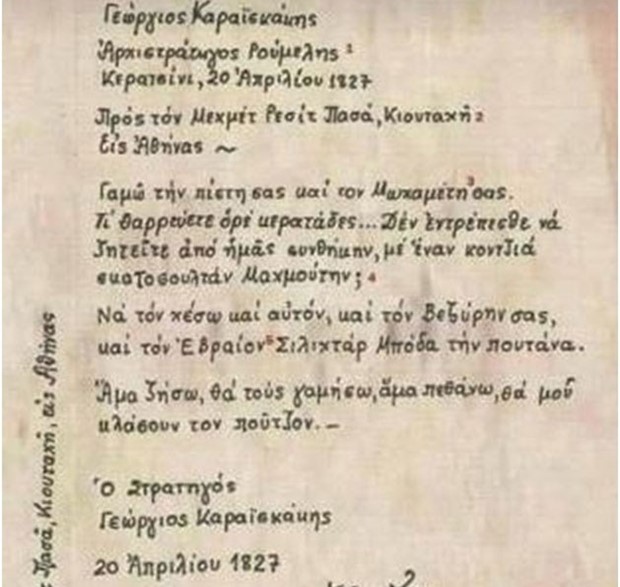 Γεώργιος Καραϊσκάκης
Ἀρχιστράτηγος Ρούμελης 1
Κερατσίνι, 20 Ἀπριλίου 1827
Πρός τόν Μεχμέτ Ρεσίτ Πασά, Κιουταχῆ 2
Εἰς Ἀθήνας ~
Γαμῶ τήν πίστη σας καί τον Μωχαμέτη 3 σας.
Τί θαρρεύετε ὀρέ κερατάδες... Δέν ἐντρέπεσθε νά
ζητεῖτε ἀπό ἡμᾶς συνθήκην, μέ ἕναν κοντζιά
σκατοσουλτάν Μαχμούτην; 4
Νά τόν χέσω καί αὐτόν, καί τόν Βεζύρην σας,
καί τόν Ἑβραίον 5 Σιλιχτάρ Μπόδα τήν πουτάνα.
Ἅμα ζήσω, θά τούς γαμήσω, ἅμα πεθάνω, θά μοῦ
κλάσουν τον ποῦτζον. –
Ὁ Στρατηγός
Γεώργιος Καραϊσκάκης
20 Ἀπριλίου 1827
Πασᾶ, Κιουταχῆ, εἰς Ἀθήνας